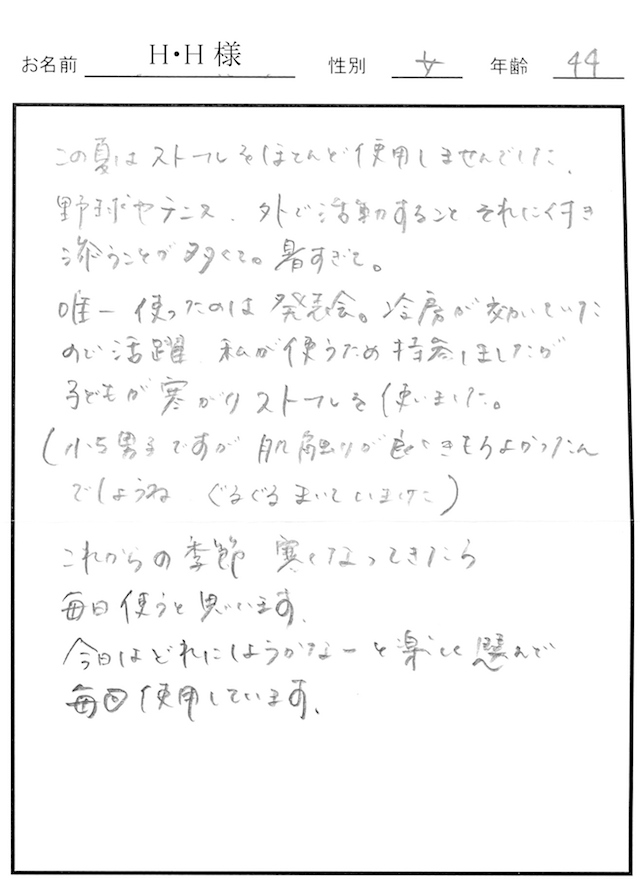 お名前 H・H 様 性別 女 年齢 44
この夏はストールをほとんど使用しませんでした、
野球やテニス、外で活動すること それに付き
添うことが多くて。暑すぎて。
唯一 使ったのは 発表会。冷房が効いていた
ので活躍 私が使うため持参しましたが
子どもが寒がりストールを使いました。
(小5男子ですが 肌触りが良くきもちよかったん
でしょうね ぐるぐるまいていました)
これからの季節 寒くなってきたら
毎日使うと思います、
今日はどれにしようかなーと楽しく選んで
毎回使用しています、